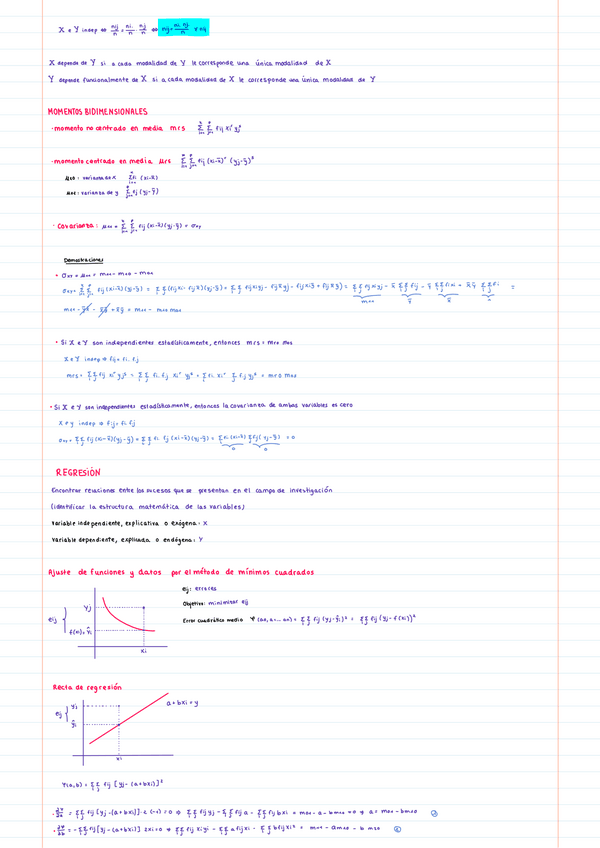 X e Y indep ⇔ nij/n = ni./n · n.j/n ⇔ nij = ni. n.j/n ∀ i,j
X depende de Y si a cada modalidad de Y le corresponde una única modalidad de X
Y depende funcionalmente de X si a cada modalidad de X le corresponde una única modalidad de Y
MOMENTOS BIDIMENSIONALES
·momento no centrado en media mrs Σ Σ fij xi^r yj^s
·momento centrado en media μrs Σ Σ fij (xi-x̄)^r (yj-ȳ)^s
μ20: varianza de X Σ fi (xi-x̄)
μ02: varianza de y Σ fj (yj-ȳ)
· Covarianza: μ11 = Σ Σ fij (xi-x̄)(yj-ȳ) = σxy
Demostraciones
• σxy = μ11 = m11 - m10 - m01
σxy = Σ Σ fij (xi-x̄)(yj-ȳ) = Σ Σ (fij xi - fij x̄)(yj-ȳ) = Σ Σ fij xi yj - fij x̄ yj - fij xi ȳ + fij x̄ ȳ = Σ Σ fij xi yj - x̄ Σ Σ fij - ȳ Σ Σ fi xi + x̄ ȳ Σ Σ fi =
m11 ȳ x̄
m11 - ȳx̄ - x̄ȳ + x̄ȳ = m11 - m10 m01
• Si X e Y son independientes estadísticamente, entonces mrs = mr0 m0s
X e Y indep ⇒ fij = fi. f.j
mrs = Σ Σ fij xi^r yj^s = Σ Σ fi. f.j xi^r yj^s = Σ fi. xi^r Σ f.j yj^s = mr0 m0s
• Si X e Y son independientes estadísticamente, entonces la covarianza de ambas variables es cero
X e y indep ⇒ fij = fi. f.j
σxy = Σ Σ fij (xi-x̄)(yj-ȳ) = Σ Σ fi. f.j (xi-x̄)(yj-ȳ) = Σ fi (xi-x̄) Σ fj (yj-ȳ) = 0
0 0
REGRESIÓN
Encontrar relaciones entre los sucesos que se presentan en el campo de investigación
(identificar la estructura matemática de las variables)
Variable independiente, explicativa o exógena: X
Variable dependiente, explicada o endógena: Y
Ajuste de funciones y datos por el método de mínimos cuadrados
eij: errores
Objetivo: minimizar eij
Error cuadrático medio Ψ (a0, a1... an) = Σ Σ fij (yj-ŷi)² = Σ Σ fij (yj - f(xi))²
eij
Yj
f(xi)=Ŷi
xi
Recta de regresión
a + bxi = y
eij
yj
ŷi
xi
Ψ(a,b) = Σ Σ fij [yj - (a+bxi)]²
· ∂Ψ/∂a = Σ Σ fij [yj - (a+bxi)]·2 (-1) = 0 ⇒ Σ Σ fij yj - Σ Σ fij a - Σ Σ fij bxi = m01 - a - b m10 = 0 ⇒ a = m01 - b m10
· ∂Ψ/∂b = - Σ Σ fij [yj - (a+bxi)] 2xi = 0 ⇒ Σ Σ fij xi yi - Σ Σ a fij xi - Σ Σ b fij xi² = m11 - a m10 - b m20